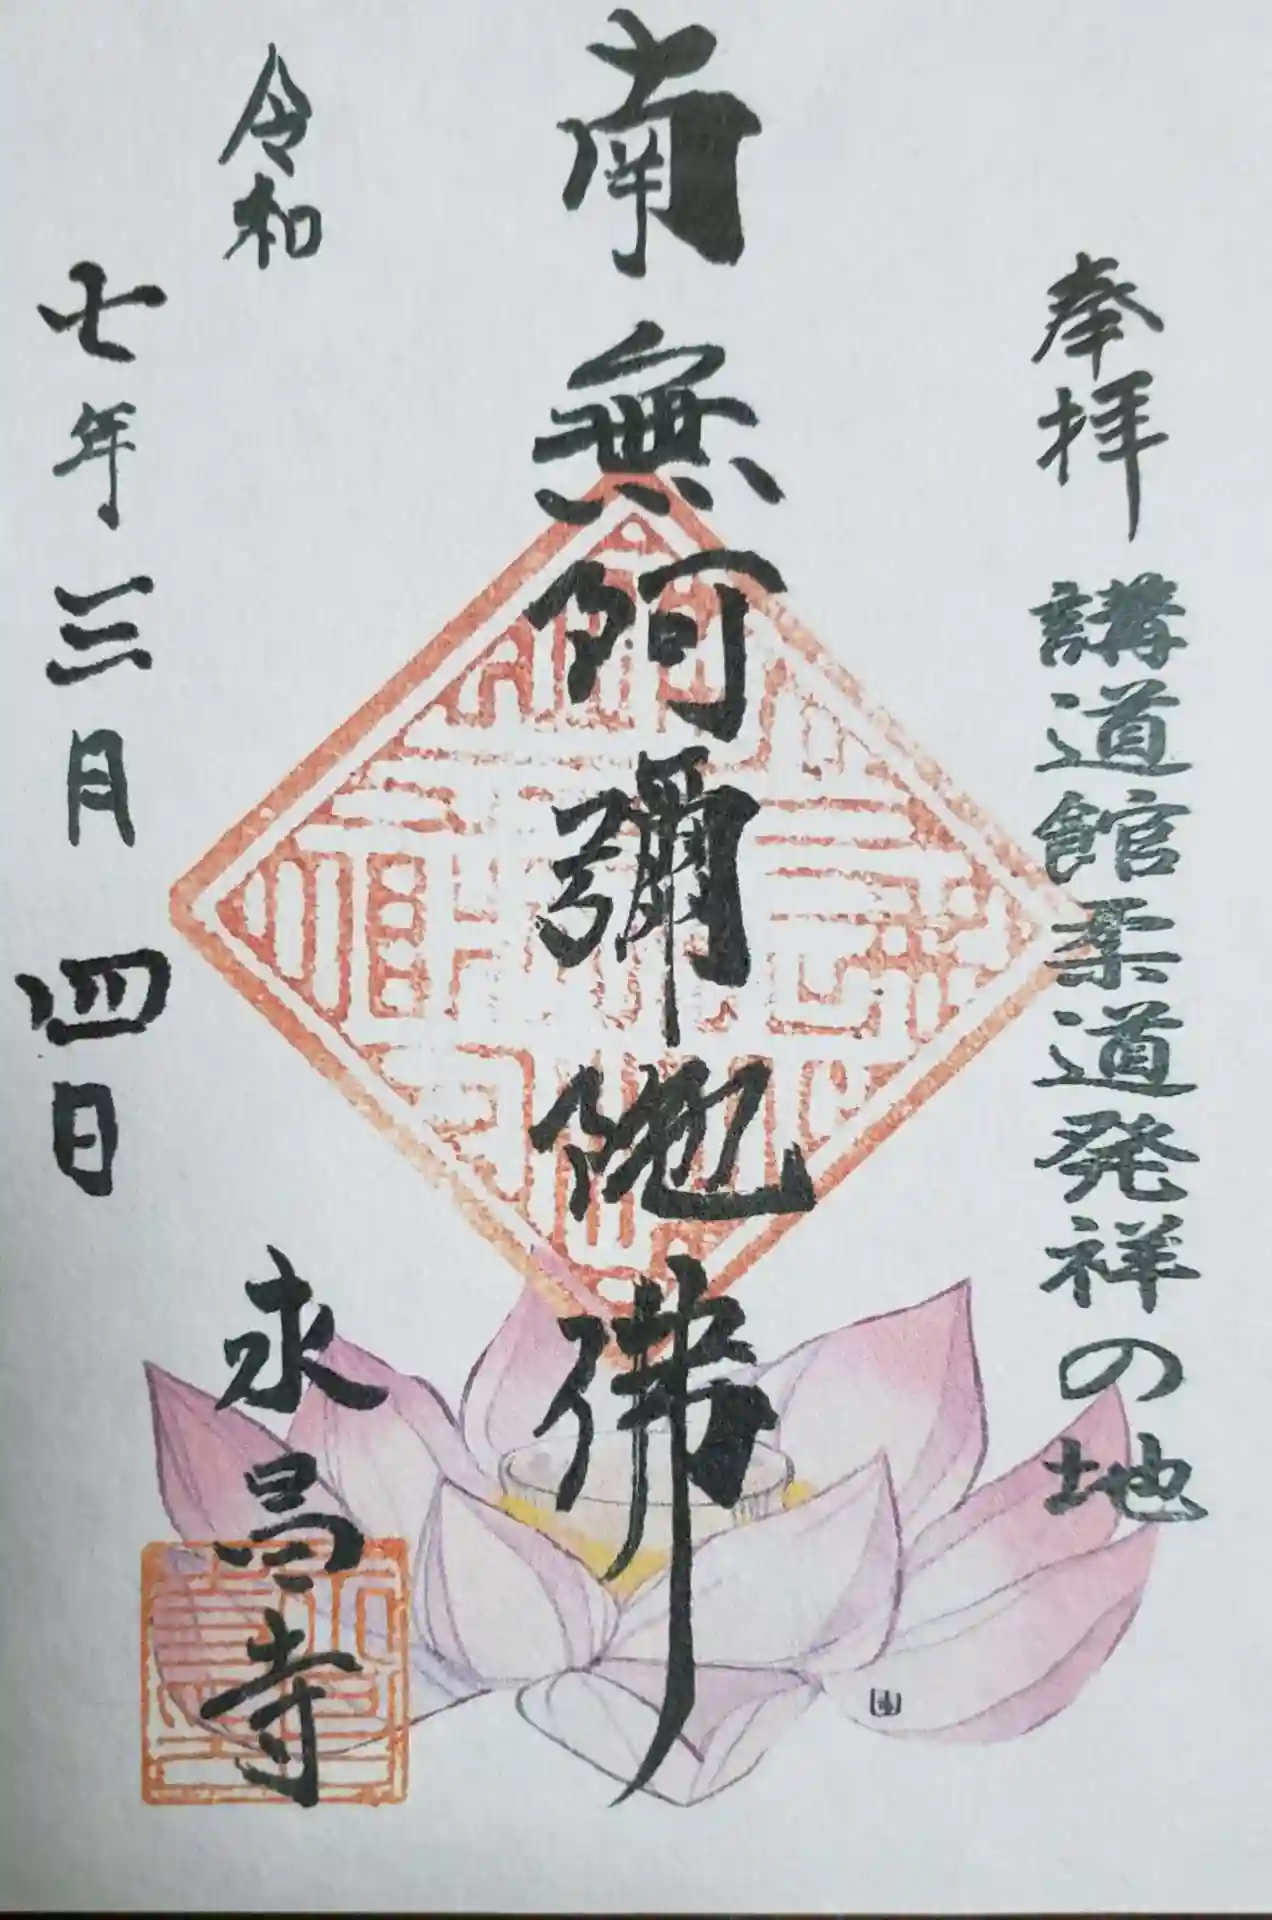 奉拝
講道館柔道発祥の地
南無阿彌陀佛
令和
七年三月四日
永昌寺